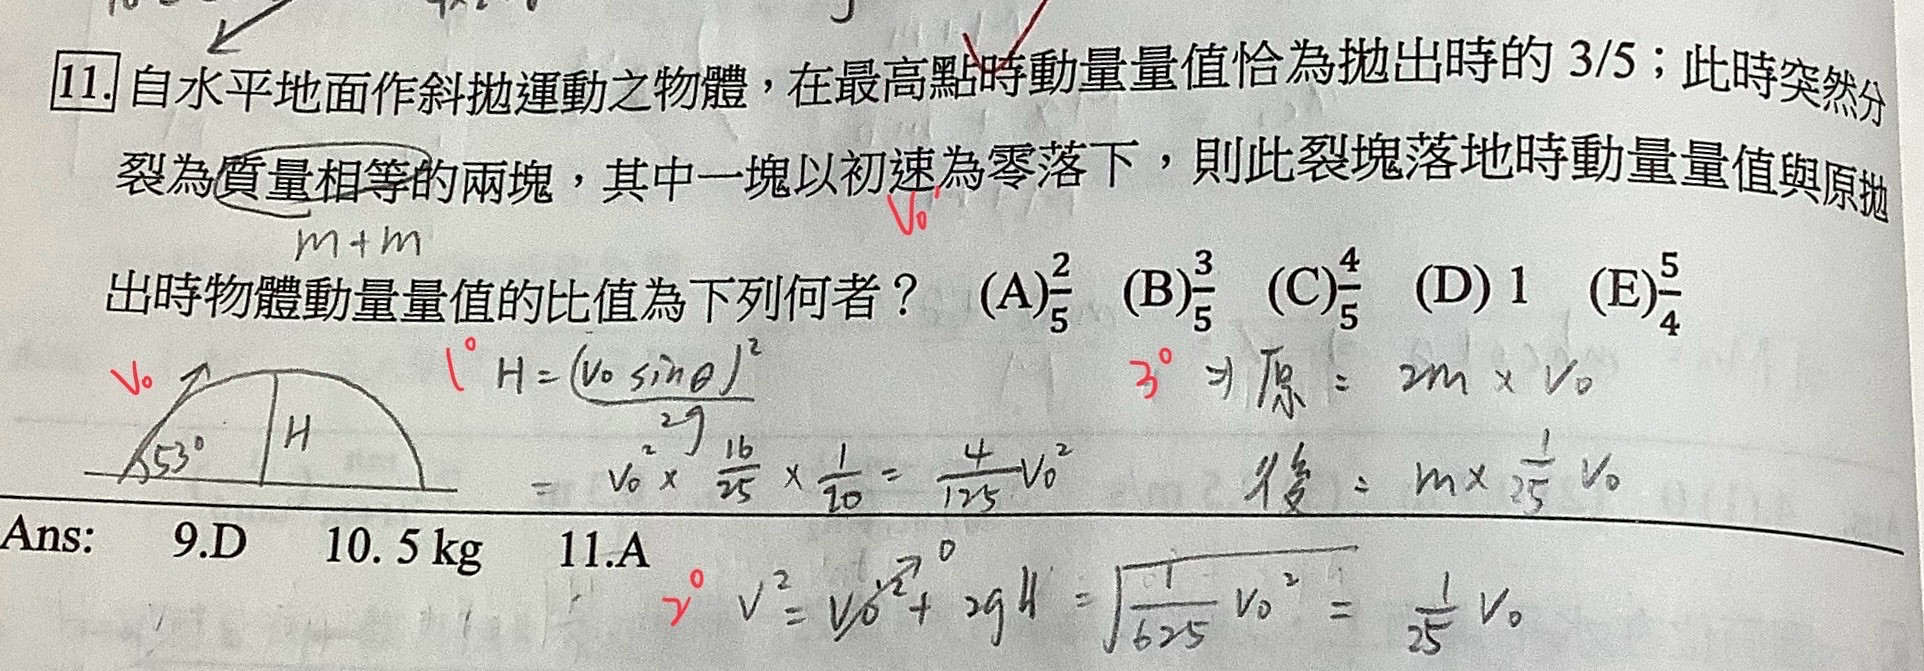 11. 自水平地面作斜拋運動之物體，在最高點時動量量值恰為拋出時的 3/5；此時突然分
裂為質量相等的兩塊，其中一塊以初速為零落下，則此裂塊落地時動量量值與原拋
V₀'
m+m
出時物體動量量值的比值為下列何者？ (A)2/5 (B)3/5 (C)4/5 (D) 1 (E)5/4
V₀ 53° H
1° H = (V₀ sinθ)²/2g
= V₀² × 16/25 × 1/20 = 4/125 V₀²
3° ⇒ 原 = 2m × V₀
後 = m × 1/25 V₀
Ans: 9.D 10. 5 kg 11.A
2° V² = V₀² + 2gH = √(1/625 V₀²) = 1/25 V₀
0